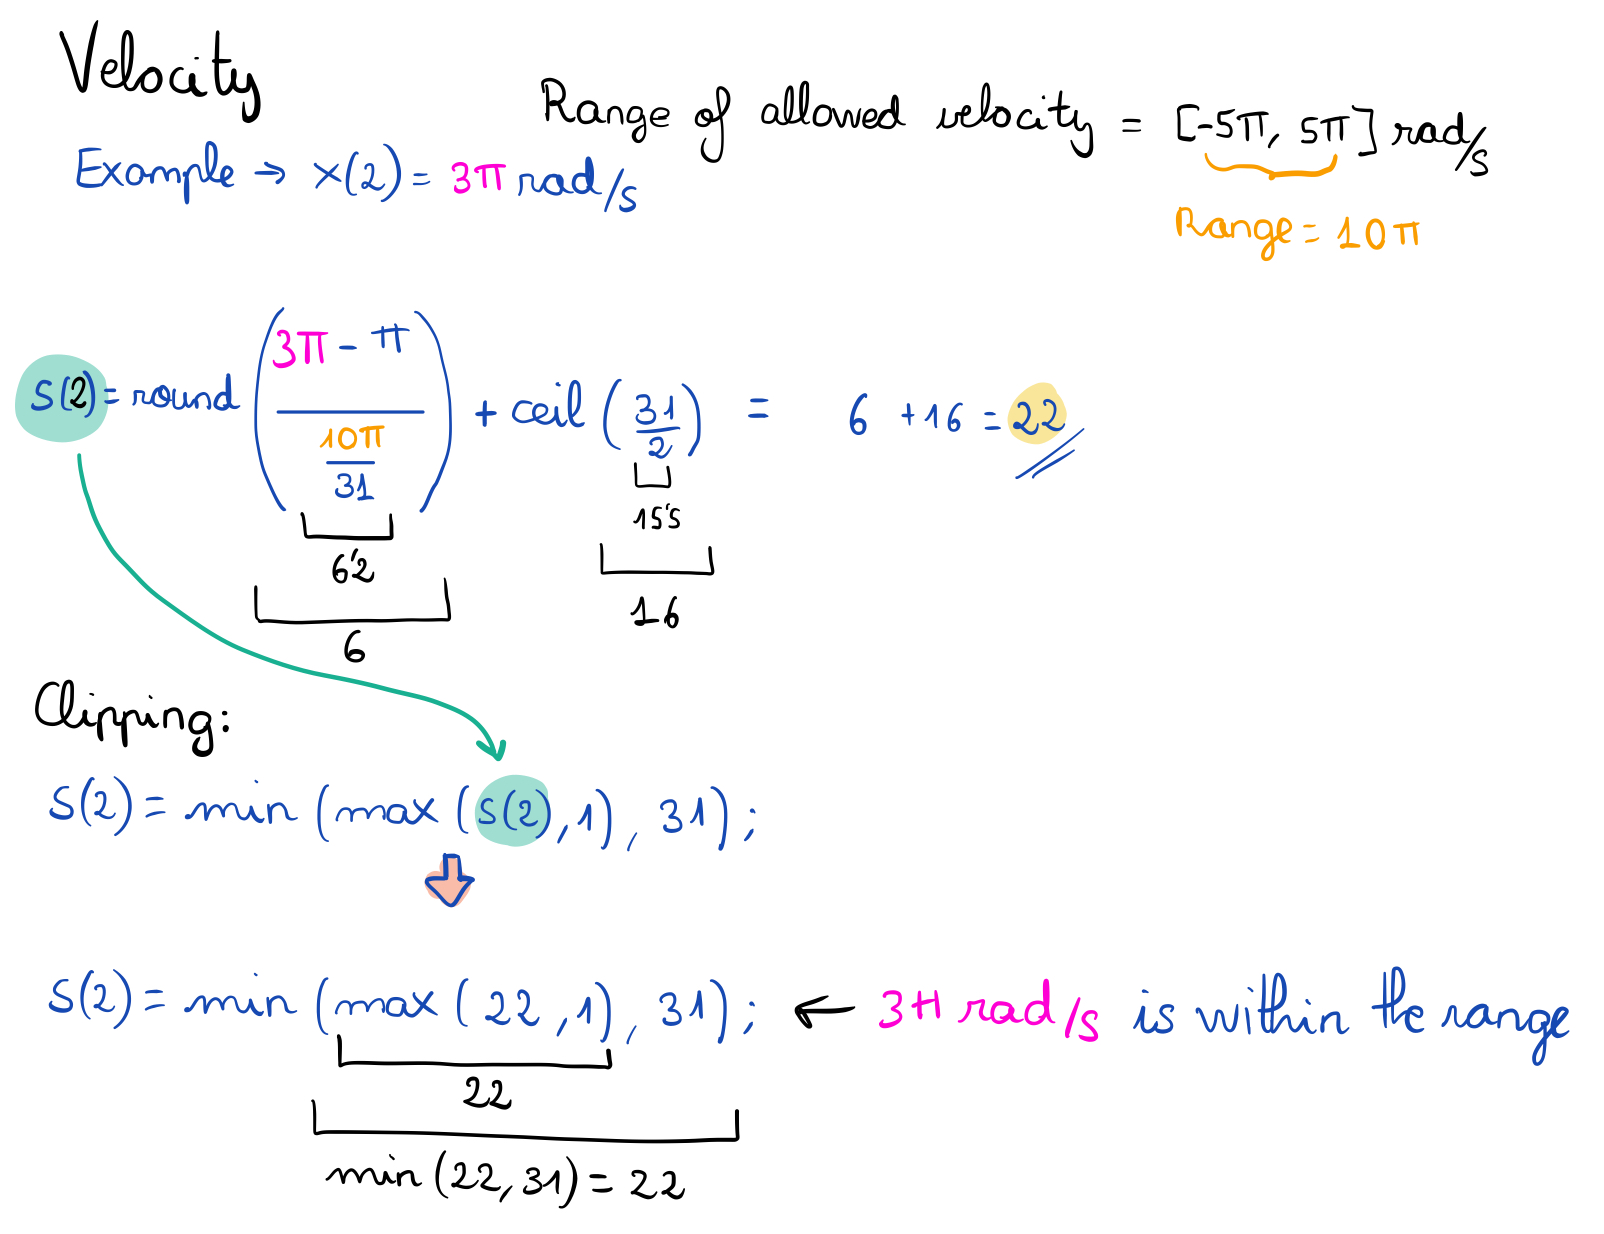 Velocity
Range of allowed velocity = [-5π, 5π] rad/s
Example → x(2) = 3π rad/s
Range = 10π
S(2) = round ( (3π - π) / (10π / 31) ) + ceil ( 31 / 2 ) = 6 + 16 = 22
6'2
15'5
6
16
Clipping:
S(2) = min (max (S(2), 1), 31);
S(2) = min (max (22, 1), 31); ← 3π rad/s is within the range
22
min (22, 31) = 22